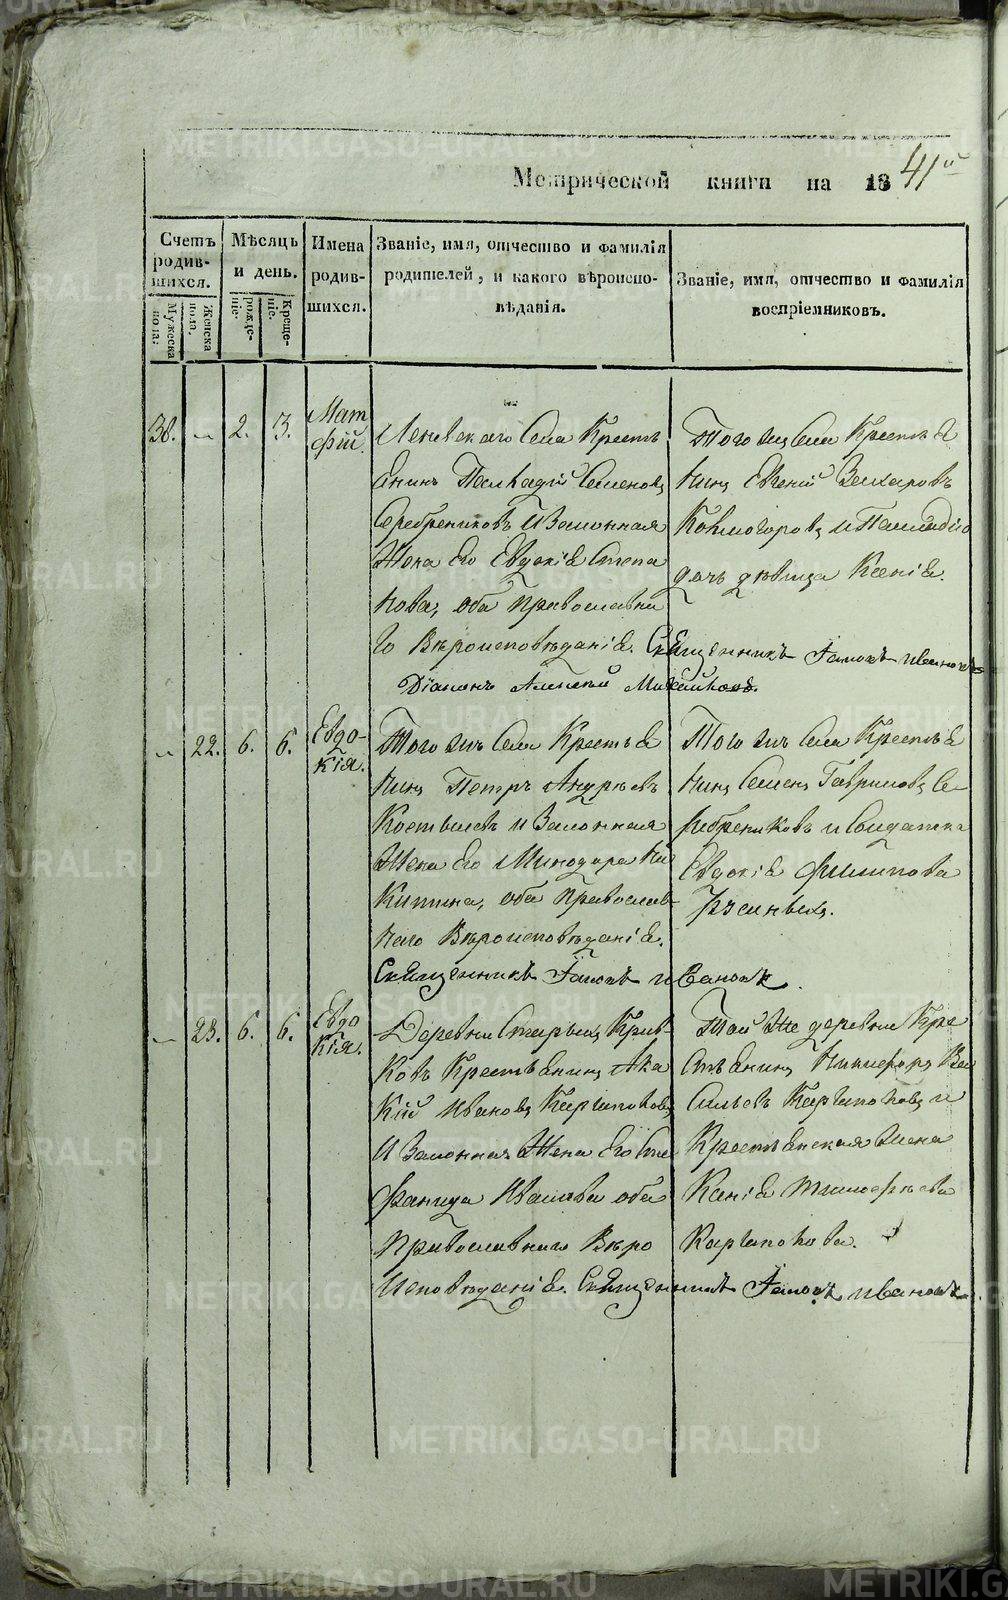 Метрической книги на 1841й
Счетъ родив-
шихся.
Мужеска пола.
Женска пола.
Мѣсяцъ и день.
рожде-
ніе.
Креще-
ніе.
Имена
родив-
шихся.
Званіе, имя, отчество и фамилія
родителей, и какого вѣроиспо-
вѣданія.
Званіе, имя, отчество и фамилія
воспріемниковъ.
38. — 2. 3.
Мат
фій.
Села Крестья
Енинъ Семеновъ
Серебрениковъ и Законная
Жена Его Евдокія Степа
нова, оба православна
го Вѣроисповѣданія. Священникъ Іаковъ Ивановъ
Діаконъ Алексѣй
Того жъ Села Крестья
нинъ Евгеній Захаровъ
Колмогоровъ и
дочь дѣвица Ксенія.
— 22. 6. 6.
Евдо-
кія.
Того жъ Села Крестья
нинъ Петръ Андреевъ
и Законная
Жена Его Минодора Ни
китина, оба Православ-
наго Вѣроисповѣданія.
Священникъ Іаковъ Ивановъ.
Того жъ Села Крестья
нинъ Семенъ Гавриловъ Се-
ребрениковъ и Солдатска
Евдокія Филипова
— 23. 6. 6.
Евдо
кія.
Деревни Старыхъ Крив-
ковъ Крестьянинъ Ака
кій Ивановъ Каргаполовъ
и Законная Жена Его Сте
фанида Ивановна оба
Православнаго Вѣро
исповѣданія. Священникъ Іаковъ Ивановъ.
Той же деревни Кре
стьянинъ Никифоръ Ва
сильевъ Каргаполовъ и
Крестьянская жена
Ксенія Тимофѣева
Каргаполова.